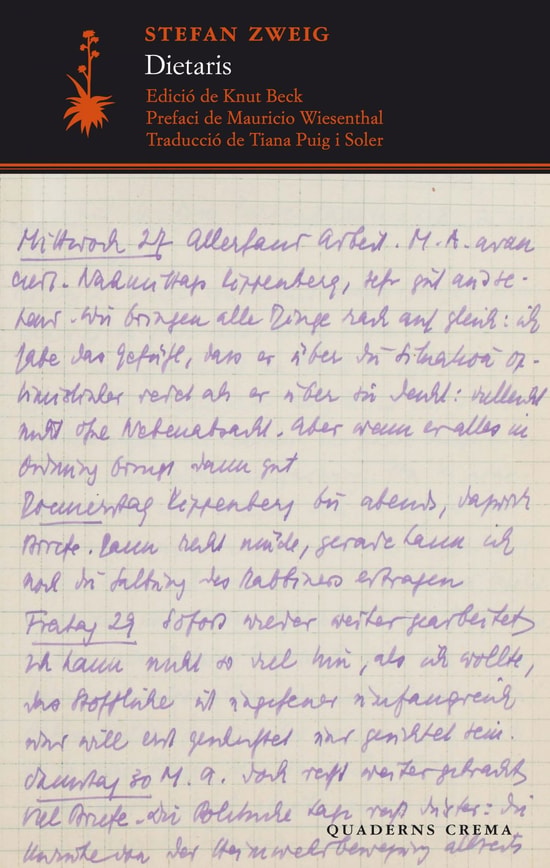 STEFAN ZWEIG
Dietaris
Edició de Knut Beck
Prefaci de Mauricio Wiesenthal
Traducció de Tiana Puig i Soler
Mittwoch 27 Allerhand Arbeit. M. A. avan
ciert. Nachmittags Kippenberg, sehr gut ausse-
hend. Wir bringen alle Dinge rasch auf gleich: ich
habe das Gefühl, dass er über die Situation op-
timistischer redet als er über sie denkt: vielleicht
nicht ohne Nebenabsicht. Aber wenn er alles in
Ordnung bringt dann gut
Donnerstag Kippenberg bis abends,
Briefe. Dann recht müde, gerade kann ich
noch die des Rabbiners ertragen
Freitag 29 Sofort wieder weitergearbeitet
ich kann nicht so viel tun, als ich wollte,
das Stoffliche ist ungeheuer umfangreich
und will erst und gesichtet sein.
Samstag 30 M. A. doch weitergebracht
viel Briefe. Die Politische Lage düster: die
von der Heimwehrbewegung
QUADERNS CREMA